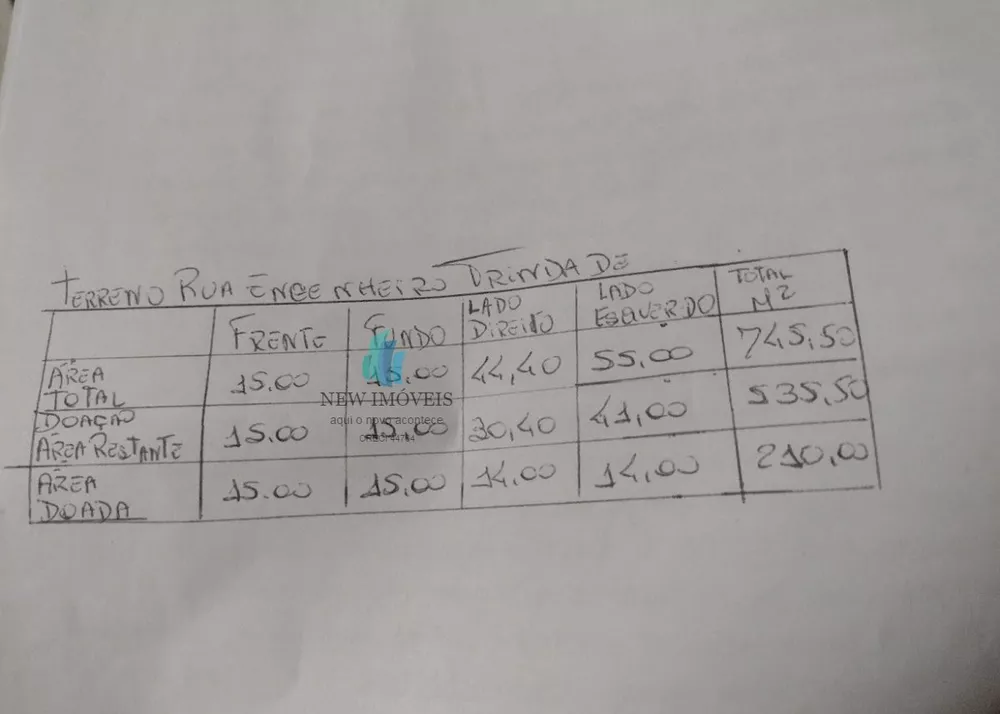 TERRENO RUA ENGENHEIRO TRINDADE
FRENTE FUNDO LADO DIREITO LADO ESQUERDO TOTAL M2
ÁREA TOTAL 15.00 15.00 44,40 55,00 745,50
DOAÇÃO ÁREA RESTANTE 15.00 15,00 30,40 41,00 535,50
ÁREA DOADA 15.00 15.00 14,00 14,00 210,00
NEW IMÓVEIS
aqui o novo acontece